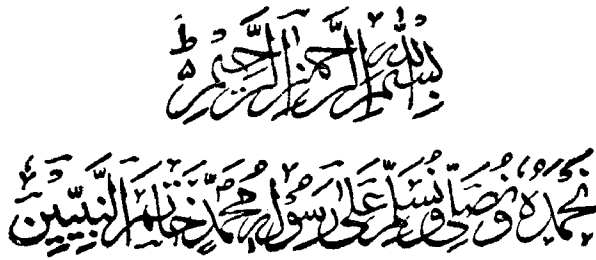 بِسْمِ اللّٰهِ الرَّحْمٰنِ الرَّحِيْمِ ط
نَحْمَدُهٗ وَ نُصَلِّيْ وَ نُسَلِّمُ عَلٰى رَسُوْلِهٖ مُحَمَّدٍ خَاتَمِ النَّبِيّٖنَ